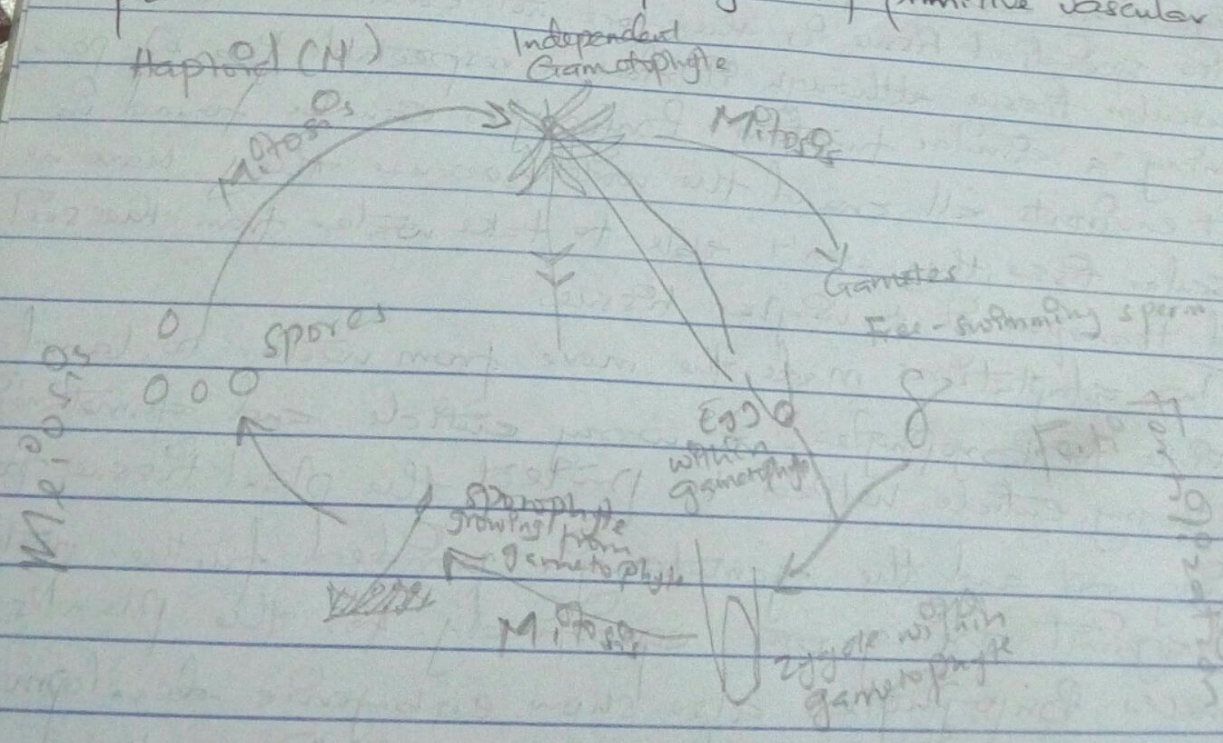 vascular
Haploid (N)
Independent
Gametophyte
Mitosis
Mitosis
Gametes
Free-swimming sperm
spores
Meiosis
Egg
within
gametophyte
Fertilization
sporophyte
growing
from
gametophyte
Mitosis
zygote within
gametophyte